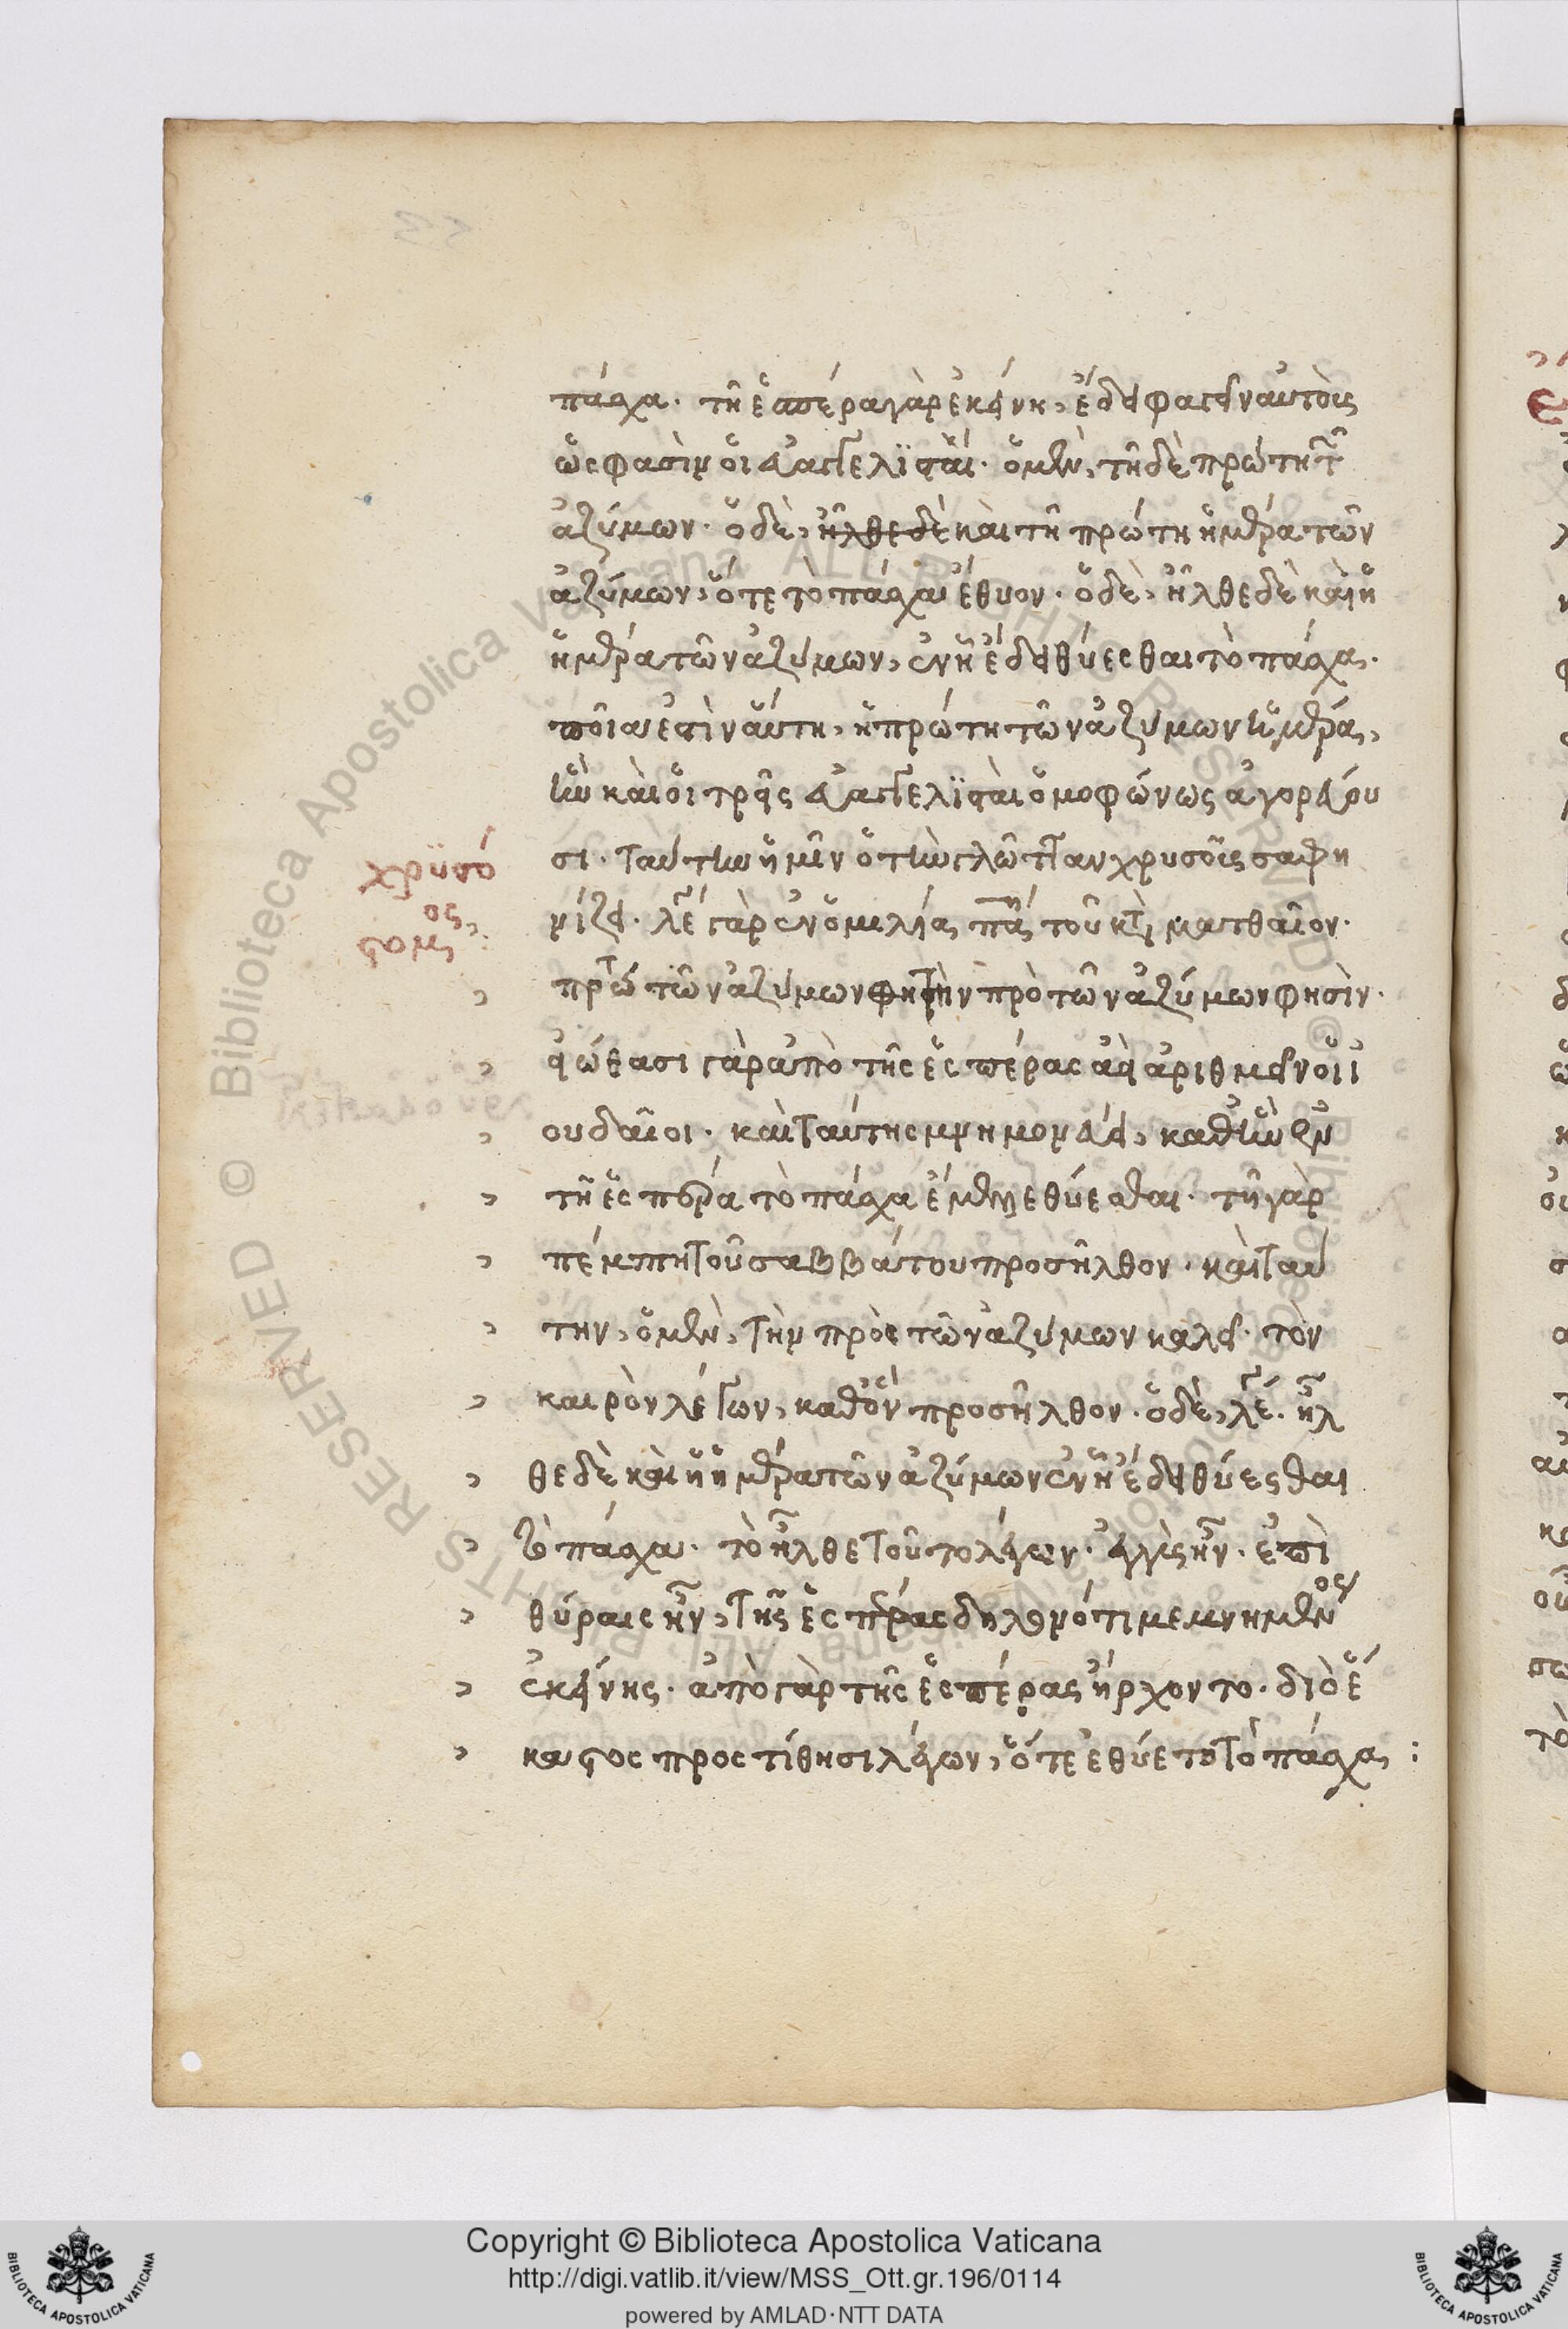 πάσχα. τῆ ἑσπέρα γὰρ ἐκείνη, ἔδει φαγεῖν αὐτοὺς
ὥς φασὶν οἱ εὐαγγελϊσταί. ὁ μὲν, τῆ δὲ πρώτη τῶν
ἀζύμων. ὁ δὲ, ἦλθε δὲ καὶ τῆ πρώτη ἡμέρα τῶν
ἀζύμων, ὅτε τὸ πάσχα ἔθυον. ὁ δὲ, ἦλθε δὲ καὶ ἡ
ἡμέρα τῶν ἀζύμων, ἐν ἧ ἔδει θύεσθαι τὸ πάσχα.
ποῖα ἐστὶν αὕτη, ἡ πρώτη τῶν ἀζύμων ἡμέρα,
ἣν καὶ οἱ τρεῖς εὐαγγελϊσταὶ ὁμοφώνως ἀγορεύου
σι. ταύτην ἡμῖν ὁ τὴν γλῶτταν χρυσοῦς σαφη
νίζει. λέγει γὰρ ἐν ὁμιλία πα τοῦ κατὰ ματθαῖον.
χρϋσό
στομος:
πρώτην τῶν ἀζύμων τὴν πρὸ τῶν ἀζύμων φησίν.
εἰώθασι γὰρ ἀπὸ τῆς ἑσπέρας ἀεὶ ἀριθμεῖν οἱ ἰ
ουδαῖοι. καὶ ταύτης μνημονεύει, καθ' ἣν ἐν
τῆ ἑσπέρα τὸ πάσχα ἔμελλε θύεσθαι. τῆ γὰρ
πέμπτη τοῦ σαββάτου προσῆλθον. καὶ ταύ
την, ὁ μὲν, τὴν πρὸς τῶν ἀζύμων καλεῖ. τὸν
καιρὸν λέγων, καθ' ὃν προσῆλθον. ὁ δὲ, λέγει. ἦλ
θε δὲ καὶ ἡ ἡμέρα τῶν ἀζύμων ἐν ἧ ἔδει θύεσθαι
τὸ πάσχα. τὸ ἦλθε τοῦτο λέγων. ἐγγὺς ἦν. ἐπὶ
θύραις ἦν, τῆς ἑσπέρας δηλονότι μεμνημένος
ἐκείνης. ἀπὸ γὰρ τῆς ἑσπέρας ἤρχοντο. διὸ ἕ
καστος προστίθησι λέγων, ὅτε ἐθύετο τὸ πάσχα:
Copyright © Biblioteca Apostolica Vaticana
http://digi.vatlib.it/view/MSS_Ott.gr.196/0114
powered by AMLAD·NTT DATA